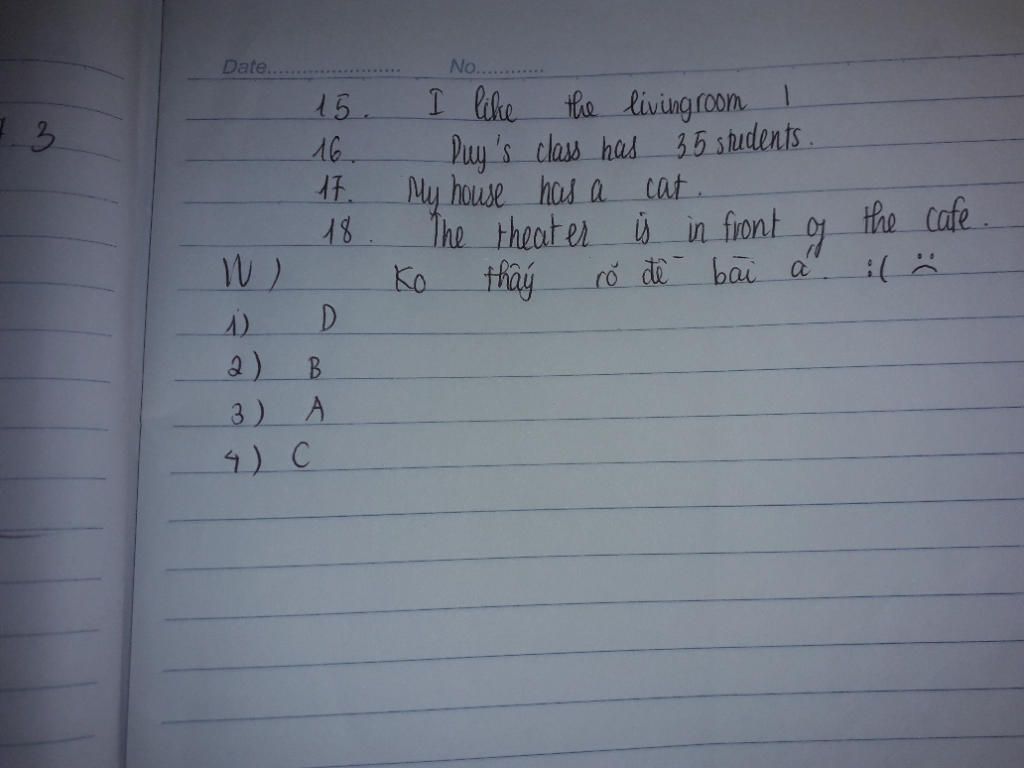 Date........................ No............
15. I like the livingroom |
7.3
16. Duy's class has 35 students.
17. My house has a cat.
18. The theater is in front of the cafe.
IV) Ko thấy rõ đề bài ạ. :(
1) D
2) B
3) A
4) C